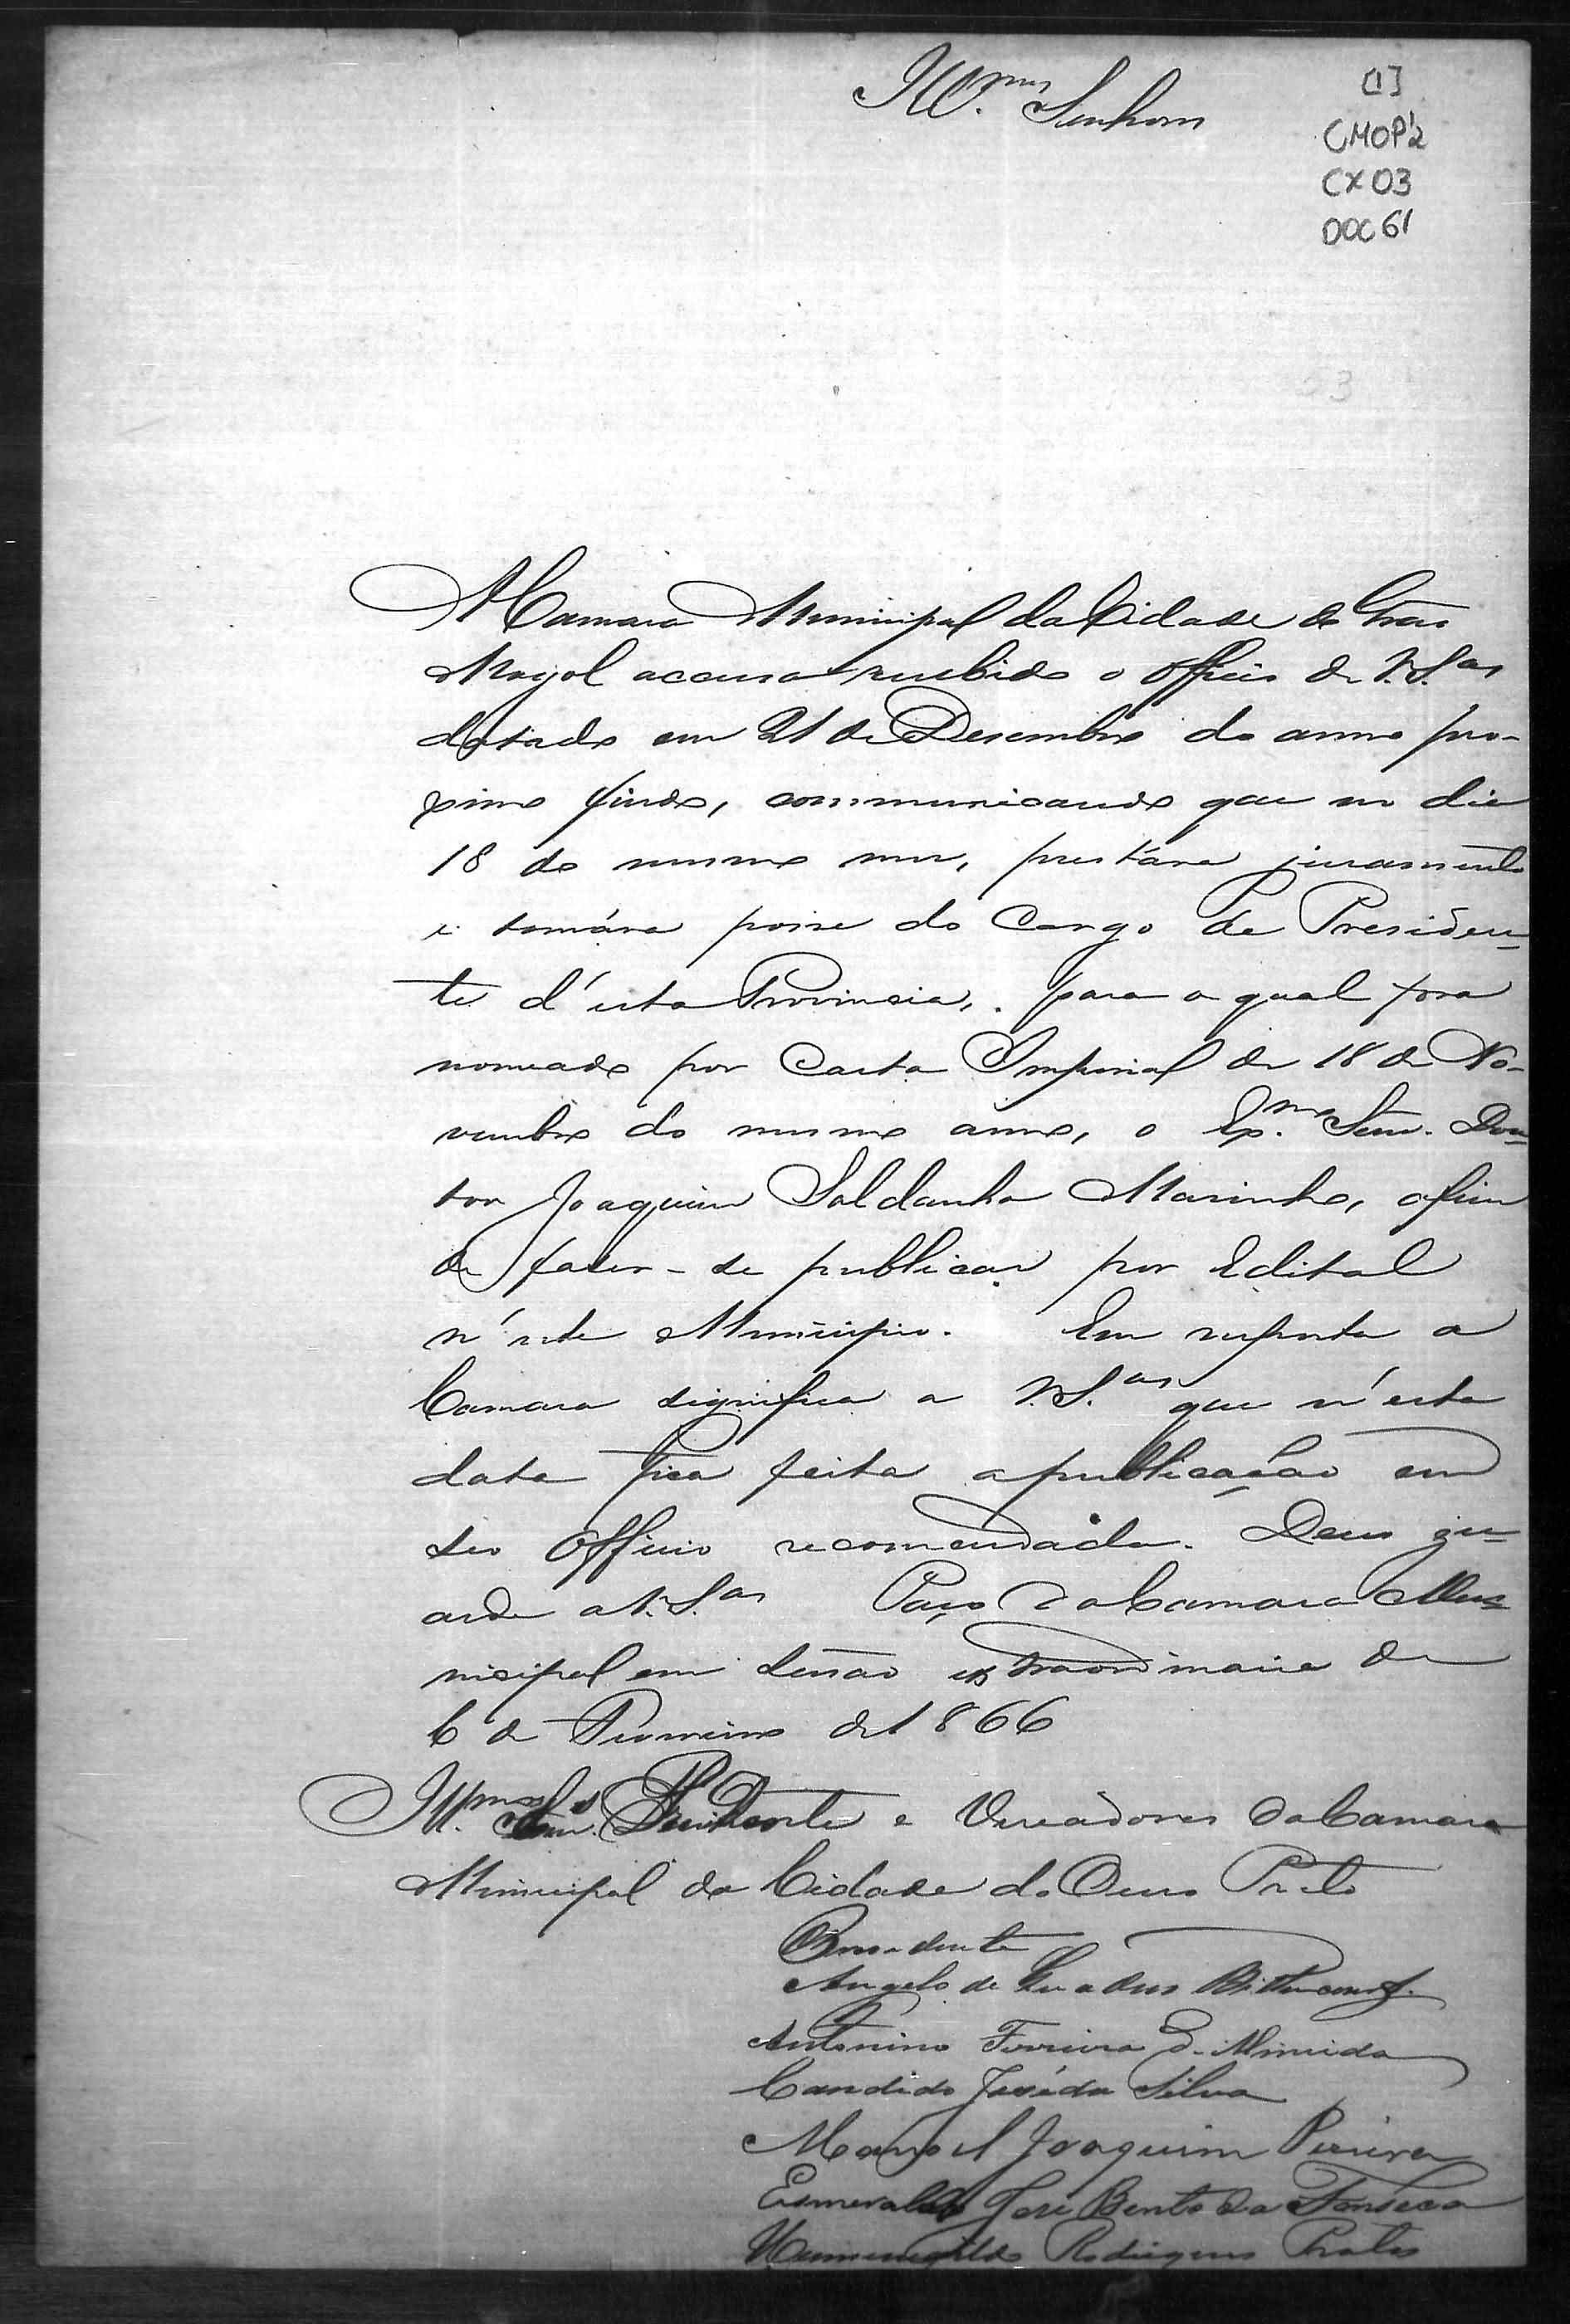 Ill.mos Senhores
[1]
CMOP'2
CX 03
DOC 61
A Camara Municipal da Cidade do Grão
Mogol accusa recebido o officio de V.S.as
datado em 21 de Desembro do anno pro-
ximo findo, communicando que no dia
18 do mesmo mes, prestára juramento
e tomára posse do Cargo de Presiden-
te d'esta Provincia, para o qual fora
nomeado por Carta Imperial de 18 de No-
vembro do mesmo anno, o Ex.mo Senr. Dou-
tor Joaquim Saldanha Marinho, afim
de faser-se publicar por Edital
n'este Municipio. Em resposta a
Camara significa a V.S.as que n'esta
data fica feita a publicação em
seo Officio recomendada. Deus gu-
arde a V.S.as Paço da Camara Mu-
nicipal em sessão extraordinaria de
6 de Fevereiro de 1866
Ill.mos Senr.s Presidente e Vereadores da Camara
Municipal da Cidade do Ouro Preto
Presidente
Angelo de Quadros Bittencourt
Antonino Ferreira d'Almeida
Candido José da Silva
Manoel Joaquim Pereira
Esmeraldo José Bento da Fonseca
Hermenegildo Rodrigues Prates